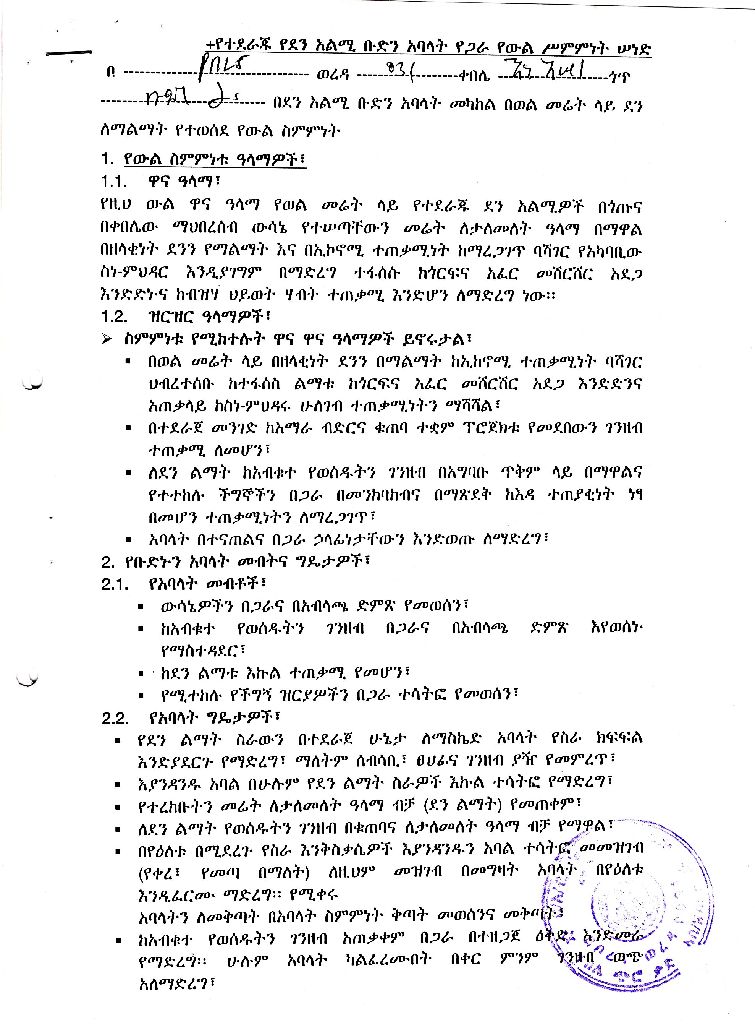 +የተደራጁ የደን አልሚ ቡድን አባላት የጋራ የውል ሥምምነት ሠነድ
በ ------------------------------- ወረዳ ----------------ቀበሌ ------------------ጎጥ
---------------------------- በደን አልሚ ቡድን አባላት መካከል በወል መሬት ላይ ደን
ለማልማት የተወሰደ የውል ስምምነት
1. የውል ስምምነቱ ዓላማዎች፣
1.1. ዋና ዓላማ፣
የዚህ ውል ዋና ዓላማ የወል መሬት ላይ የተደራጁ ደን አልሚዎች በጎጡና
በቀበሌው ማህበረሰብ ውሳኔ የተሠጣቸውን መሬት ለታለመለት ዓላማ በማዋል
በዘላቂነት ደንን የማልማት እና በኢኮኖሚ ተጠቃሚነት ከማረጋገጥ ባሻገር የአካባቢው
ስነ-ምህዳር እንዲያገግም በማድረግ ተፋሰሱ ከጎርፍና አፈር መሸርሸር አደጋ
እንድድኑና ከብዝሃ ህይወት ሃብት ተጠቃሚ እንድሆን ለማድረግ ነው።
1.2. ዝርዝር ዓላማዎች፣
➢ ስምምነቱ የሚከተሉት ዋና ዋና ዓላማዎች ይኖሩታል፣
▪ በወል መሬት ላይ በዘላቂነት ደንን በማልማት ከኢኮኖሚ ተጠቃሚነት ባሻገር
ህብረተሰቡ ከተፋሰስ ልማቱ ከጎርፍና አፈር መሸርሸር አደጋ እንድድንና
አጠቃላይ ከስነ-ምህዳሩ ሁለገብ ተጠቃሚነትን ማሻሻል፣
▪ በተደራጀ መንገድ ከአማራ ብድርና ቁጠባ ተቋም ፕሮጀክቱ የመደበውን ገንዘብ
ተጠቃሚ ለመሆን፣
▪ ለደን ልማት ከአብቁተ የወሰዱትን ገንዘብ በአግባቡ ጥቅም ላይ በማዋልና
የተተከሉ ችግኞችን በጋራ በመንከባከብና በማጽደቅ ከእዳ ተጠያቂነት ነፃ
በመሆን ተጠቃሚነትን ለማረጋገጥ፣
▪ አባላት በተናጠልና በጋራ ኃላፊነታቸውን እንድወጡ ለማድረግ፣
2. የቡድኑን አባላት መብትና ግዴታዎች፣
2.1. የአባላት መብቶች፣
▪ ውሳኔዎችን በጋራና በአብላጫ ድምጽ የመወሰን፣
▪ ከአብቁተ የወሰዱትን ገንዘብ በጋራና በአብላጫ ድምጽ እየወሰኑ
የማስተዳደር፣
▪ ከደን ልማቱ እኩል ተጠቃሚ የመሆን፣
▪ የሚተከሉ የችግኝ ዝርያዎችን በጋራ ተሳትፎ የመወሰን፣
2.2. የአባላት ግዴታዎች፣
▪ የደን ልማት ስራውን በተደራጀ ሁኔታ ለማስኬድ አባላት የስራ ክፍፍል
እንድያደርጉ የማድረግ፣ ማለትም ሰብሳቢ፣ ፀሀፊና ገንዘብ ያዥ የመምረጥ፣
▪ እያንዳንዱ አባል በሁሉም የደን ልማት ስራዎች እኩል ተሳትፎ የማድረግ፣
▪ የተረከቡትን መሬት ለታለመለት ዓላማ ብቻ (ደን ልማት) የመጠቀም፣
▪ ለደን ልማት የወሰዱትን ገንዘብ በቁጠባና ለታለመለት ዓላማ ብቻ የማዋል፣
▪ በየዕለቱ በሚደረጉ የስራ እንቅስቃሴዎች እያንዳንዱን አባል ተሳትፎ መመዝገብ
(የቀረ፣ የመጣ በማለት) ለዚህም መዝገብ በመግዛት አባላት በየዕለቱ
እንዲፈርሙ ማድረግ። የሚቀሩ
አባላትን ለመቅጣት በአባላት ስምምነት ቅጣት መወሰንና መቅጣት፣
▪ ከአብቁተ የወሰዱትን ገንዘብ አጠቃቀም በጋራ በተዘጋጀ ዕቅድ እንድመራ
የማድረግ። ሁሉም አባላት ካልፈረሙበት በቀር ምንም ገንዘብ ወጭ
አለማድረግ፣